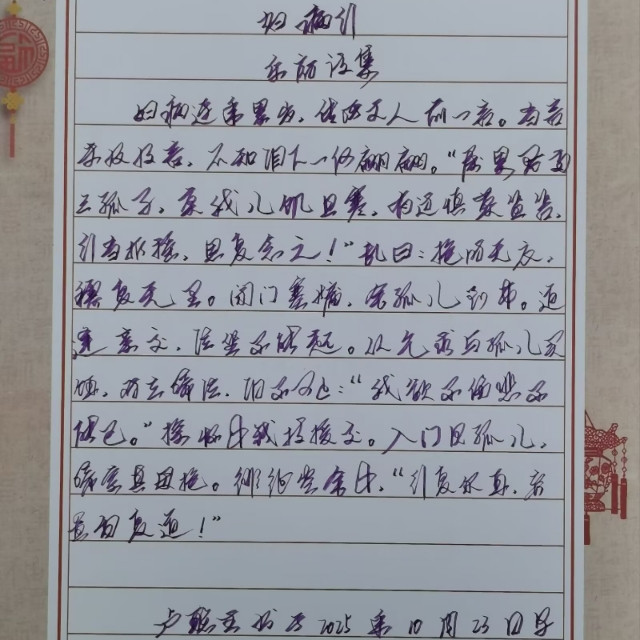 妇病行
乐府诗集
妇病连年累岁，传呼丈人前一言。当言
未及得言，不知泪下一何翩翩。“属累君两
三孤子，莫我儿饥且寒，有过慎莫笪笞，
行当折摇，思复念之！”乱曰：抱时无衣，
襦复无里。闭门塞牖，舍孤儿到市。道
逢亲交，泣坐不能起。从乞求与孤儿买
饵，对交啼泣，泪不可止：“我欲不伤悲不
能已。”探怀中钱持授交。入门见孤儿，
啼索其母抱。徘徊空舍中，“行复尔耳，弃
置勿复道！”
卢 2025年10月23日